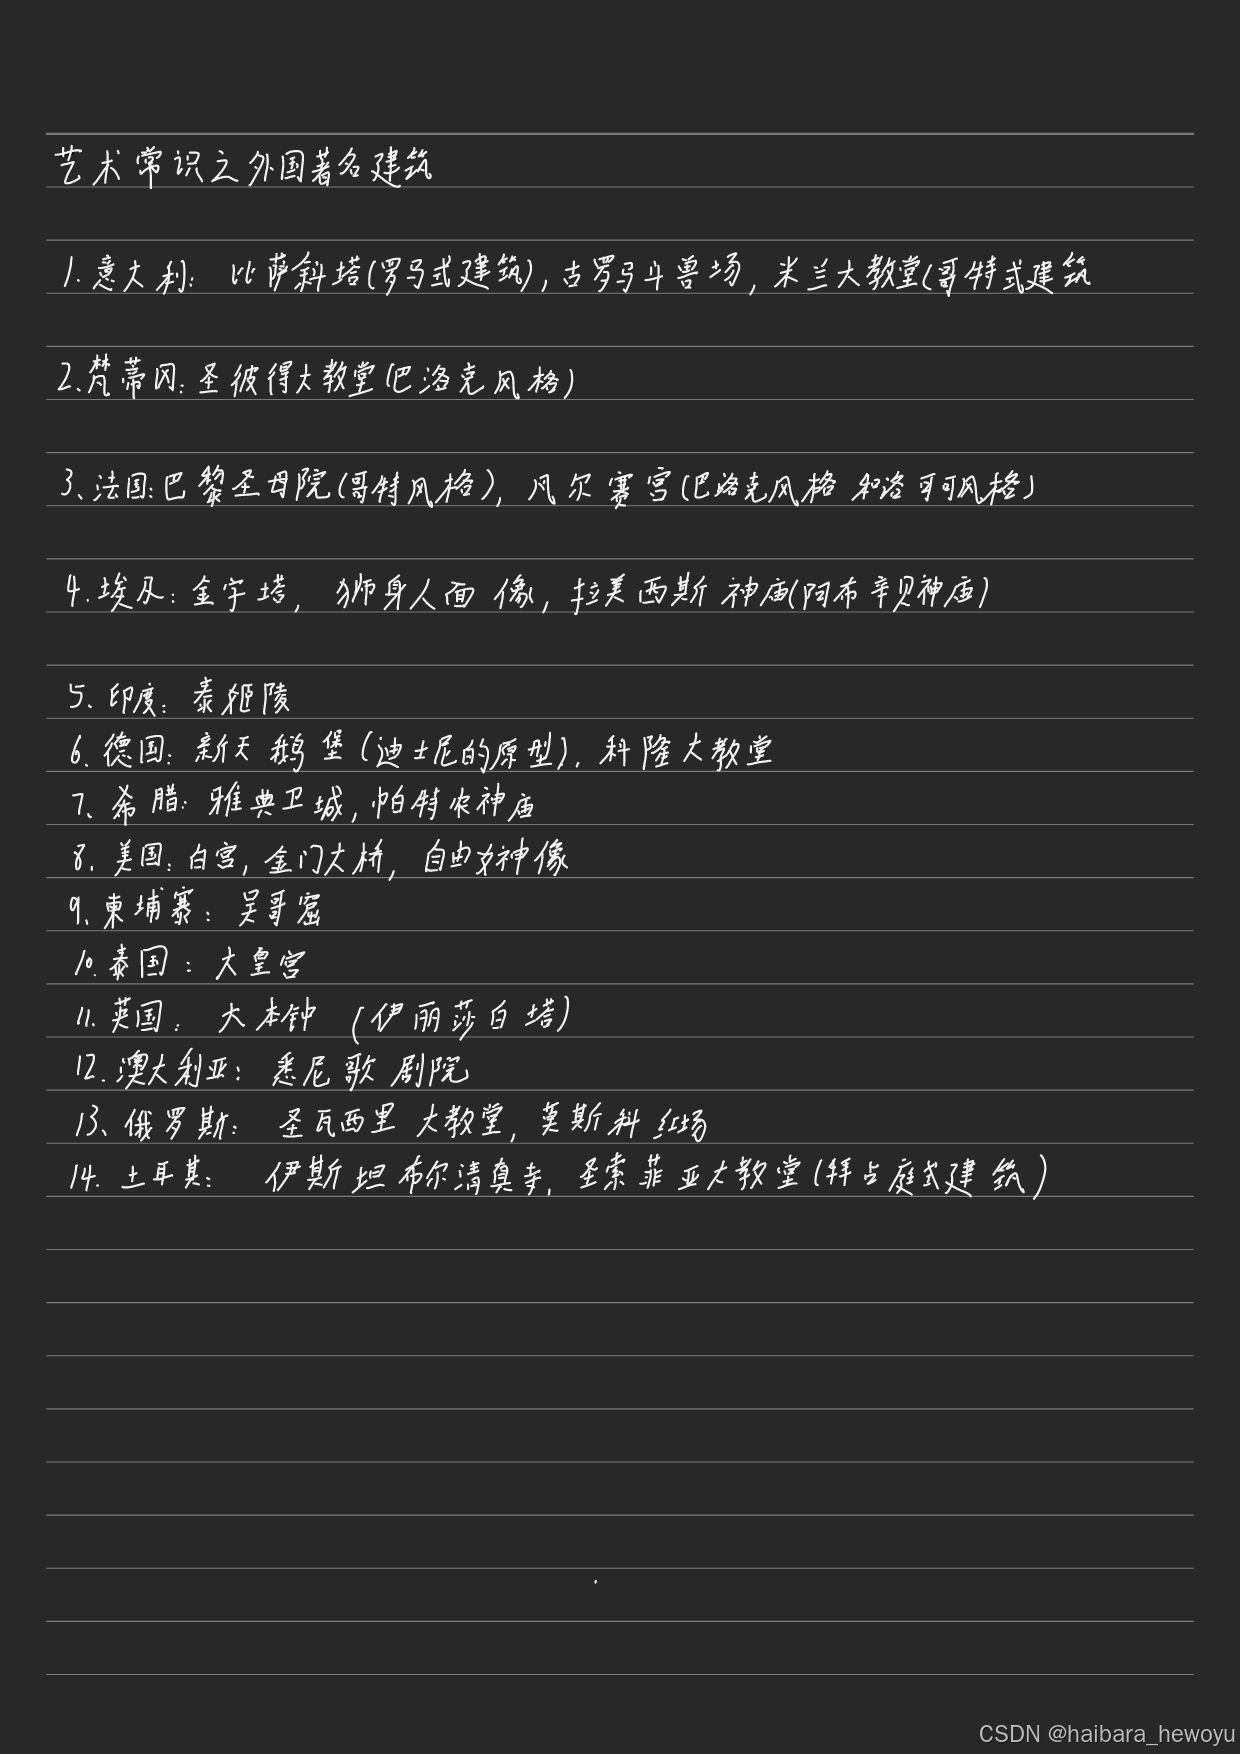 艺术常识之外国著名建筑
1.意大利: 比萨斜塔(罗马式建筑),古罗马斗兽场,米兰大教堂(哥特式建筑
2.梵蒂冈:圣彼得大教堂(巴洛克风格)
3、法国:巴黎圣母院(哥特风格),凡尔赛宫(巴洛克风格和洛可可风格)
4.埃及:金字塔,狮身人面像,拉美西斯神庙(阿布辛贝神庙)
5、印度:泰姬陵
6、德国:新天鹅堡(迪士尼的原型).科隆大教堂
7、希腊:雅典卫城,帕特农神庙
8、美国:白宫,金门大桥,自由女神像
9、柬埔寨:吴哥窟
10.泰国:大皇宫
11.英国:大本钟(伊丽莎白塔)
12.澳大利亚:悉尼歌剧院
13、俄罗斯:圣瓦西里大教堂,莫斯科红场
14.土耳其:伊斯坦布尔清真寺,圣索菲亚大教堂(拜占庭式建筑)
CSDN @haibara_hewoyu